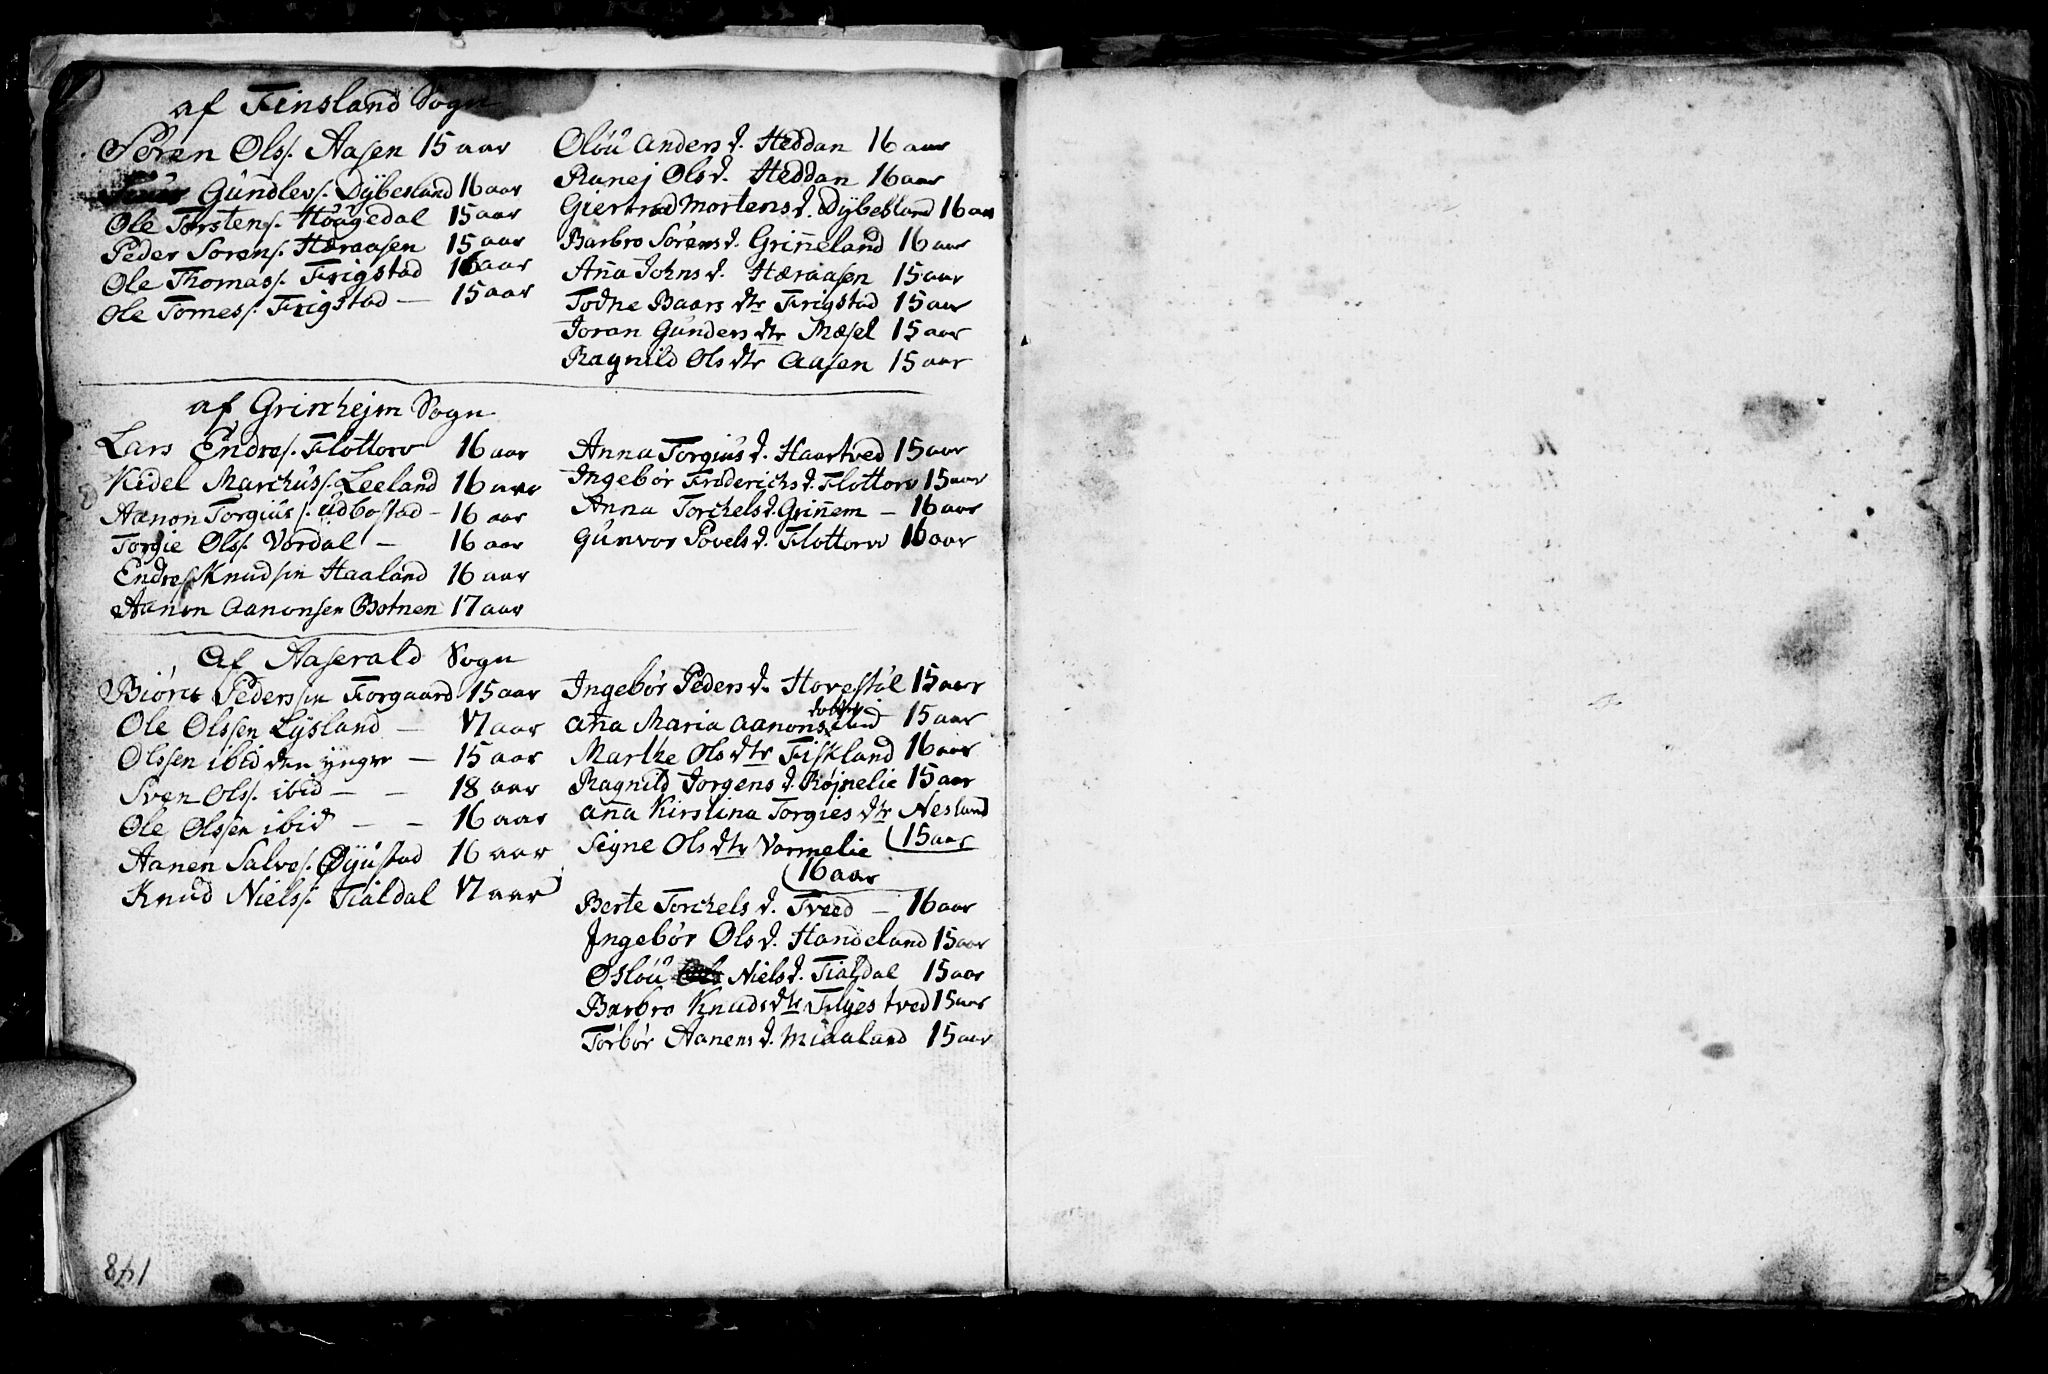 af Finsland Sogn
Søren Ols. Aasen 15 aar
Gundlevs. Dybesland 16 aar
Ole Torstens. Høagedal 15 aar
Peder Sørens. Hæraasen 15 aar
Ole Thomas. Frigstad 16 aar
Ole Tomes. Frigstad — 15 aar
Olöu Anders d. Heddan 16 aar
Ranej Ols d. Heddan 16 aar
Giertrud Mortens d. Dybesland 16 aar
Barbro Sørens d. Grinneland 16 aar
Anna Johns d. Hæraasen 15 aar
Todne Baars dtr Frigstad 15 aar
Joran Gunders dtr Mæsel 15 aar
Ragnild Ols dtr Aasen 15 aar
af Grinhejm Sogn
Lars Endres. Flottorv 16 aar
Kidel Marchus s. Leeland 16 aar
Aanon Torgius s. Udbostad – 16 aar
Torgie Ols. Vordal – 16 aar
Endre Knudsen Haaland 16 aar
Aanon Aanonsen Botnen 17 aar
Anna Torgius d. Haartved 15 aar
Ingebor Friderichs d. Flottorv 15 aar
Anna Torchels d. Grinnem – 16 aar
Gunvor Povels d. Flottorv 16 aar
Af Aaserald Sogn
Biørn Pederssen Forgaard 15 aar
Ole Olssen Lysland — 17 aar
Olssen ibid den yngre — 15 aar
Sven Ols. ibid – – 18 aar
Ole Olssen ibid – – 16 aar
Aanen Salves. Øyustad 16 aar
Knud Niels. Fialdal 17 aar
Ingebør Peders d. Hovestøl 15 aar
Anna Maria Aanons 15 aar
Marthe Ols dtr Fiskland 16 aar
Ragnild Jorgens d. Røjnelie 15 aar
Anna Kirstina Torgies dtr Nesland
15 aar
Signe Ols dtr Vormelie
16 aar
Berte Torchels d. Tved — 16 aar
Ingebør Ols d. Handeland 15 aar
Osløu Niels d. Fialdal 15 aar
Barbro Knuds dtr Tilyestved 15 aar
Torbør Aanens d. Miaaland 15 aar
148